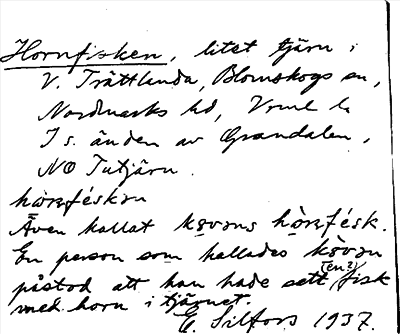 Hornfisken, litet tjärn i
V. Trättlanda, Blomskogs sn,
Nordmarks hd, Vrml l.
I s. änden av Grandalen,
NO Tutjärn.
hò̠ɳféskən
Även kallat kȣvəns hò̠ɳfésk.
En person som kallades kȣ̀vən
påstod att han hade sett (en?) fisk
med horn i tjärnet.
E. Silfors 1937.